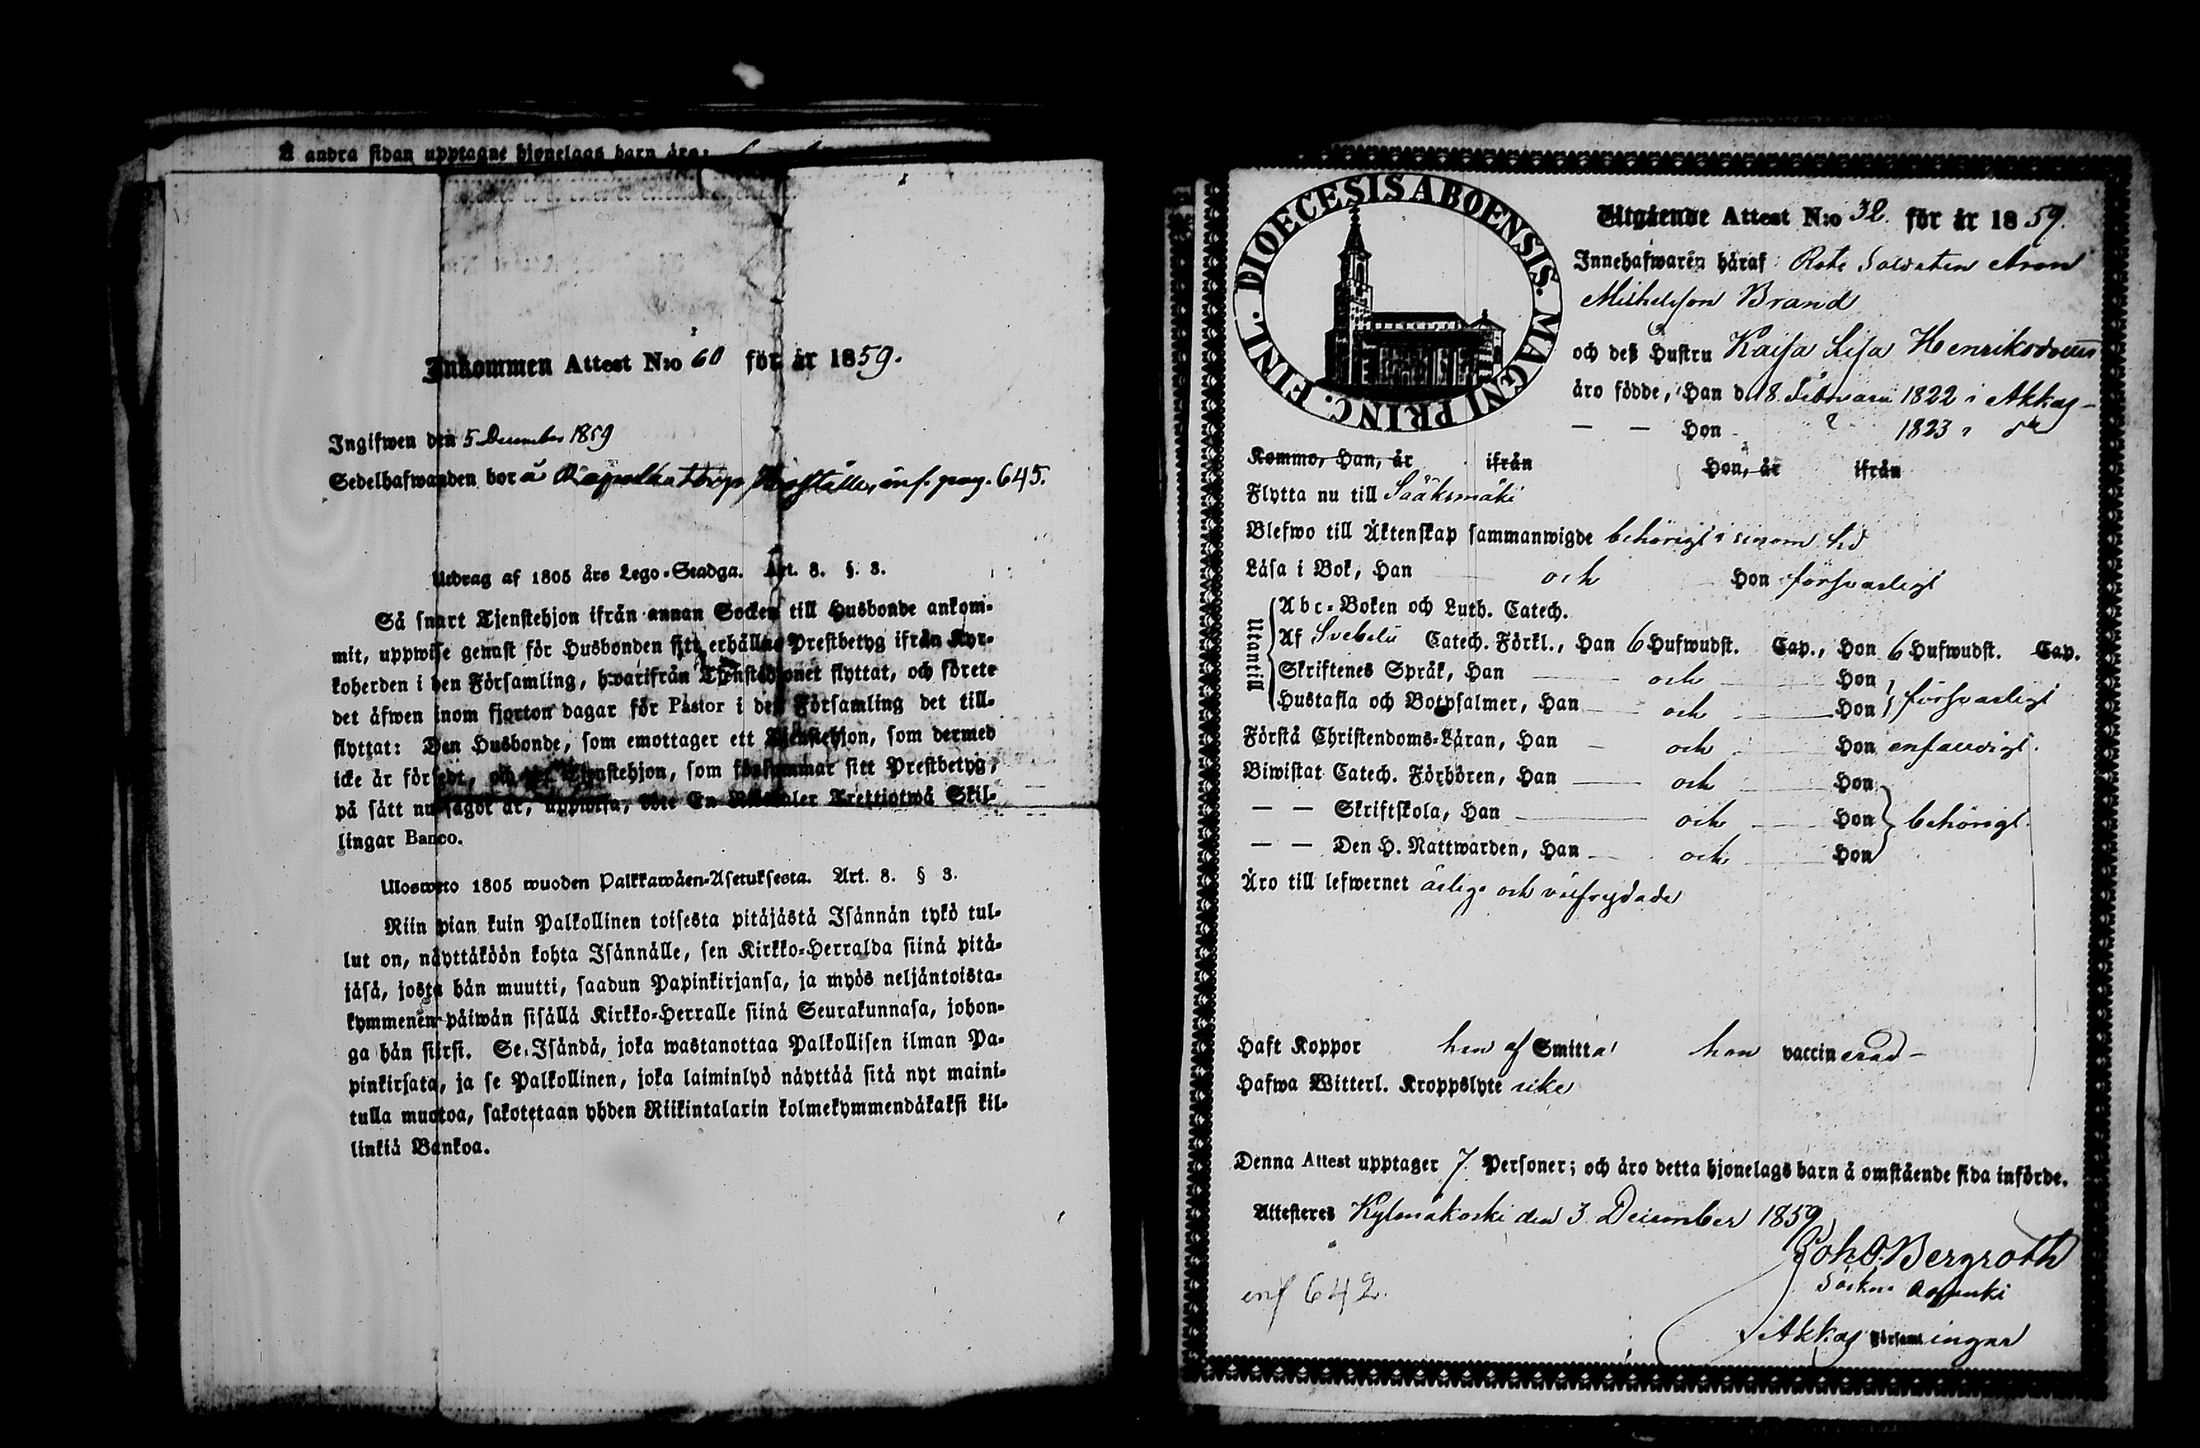 Å andra sidan upptagne hjonelags barn äro:
Inkommen Attest N:o 60 för år 1859.
Ingifwen den 5 December 1859
Sedelhafwanden bor å inf. pag. 645.
Utdrag af 1805 års Lego-Stadga. Art. 8. §. 3.
Så snart Tjenstehjon ifrån annan Socken till Husbonde ankom-
mit, uppwise genast för Husbonden sitt erhållna Prestbetyg ifrån Kyr-
koherden i den Församling, hwarifrån Tjenstehjonet flyttat, och förete
det äfwen inom fjorton dagar för Pastor i den Församling det till-
flyttat: Den Husbonde, som emottager ett Tjenstehjon, som dermed
icke är försedt, och det Tjenstehjon, som försummar sitt Prestbetyg,
på sätt nu sagdt är, uppwisa, böte En Riksdaler Trettiotwå Skil-
lingar Banco.
Ulosweto 1805 wuoden Palkkawäen-Asetuksesta. Art. 8. § 3.
Niin pian kuin Palkollinen toisesta pitäjästä Isännän tykö tul-
lut on, näyttäköön kohta Isännälle, sen Kirkko-Herralda siinä pitä-
jäsä, josta hän muutti, saadun Papinkirjansa, ja myös neljäntoista-
kymmenen päiwän sisällä Kirkko-Herralle siinä Seurakunnasa, johon-
ga hän siirsi. Se Isändä, joka wastanottaa Palkollisen ilman Pa-
pinkirjata, ja se Palkollinen, joka laiminlyö näyttää sitä nyt maini-
tulla muotoa, sakotetaan yhden Riikintalarin kolmekymmendäkaksi kil-
linkiä Bankoa.
DIOECESIS ABOENSIS. MAGNI PRINC. FINL.
Utgående Attest N:o 32. för år 1859.
Innehafwaren häraf Rote Soldaten Aron
Michelsson Brand
och deß Hustru Kaisa Lisa Henriksdotter
äro födde, Han d. 18 Februari 1822 i Akkas
— — Hon ? 1823 i dito
Kommo, Han, år ifrån Hon, år ifrån
Flytta nu till Sääksmäki
Blefwo till Äktenskap sammanwigde behörigt i sinom tid
Läsa i Bok, Han och Hon försvarligt
Utantill
Abc-Boken och Luth. Catech.
Af Svebelii Catech. Förkl., Han 6 Hufwudst. Cap., Hon 6 Hufwudst. Cap.
Skriftenes Språk, Han och Hon
Hustafla och Botpsalmer, Han och Hon försvarligt
Förstå Christendoms-Läran, Han och Hon enfaldigt.
Biwistat Catech. Förhören, Han och Hon
— — Skriftskola, Han och Hon behörigt.
— — Den H. Nattwarden, Han och Hon
Äro till lefwernet ärlige och välfrejdade
Haft Koppor han af Smitta hon vaccinerad
Hafwa Witterl. Kroppslyte icke
Denna Attest upptager 7 Personer; och äro detta hjonelags barn å omstående sida införde.
Attesteras Kylmäkoski den 3 December 1859
Joh. O. Bergroth
Sockne Adjunkt
inf 642.
i Akkas Församlingar